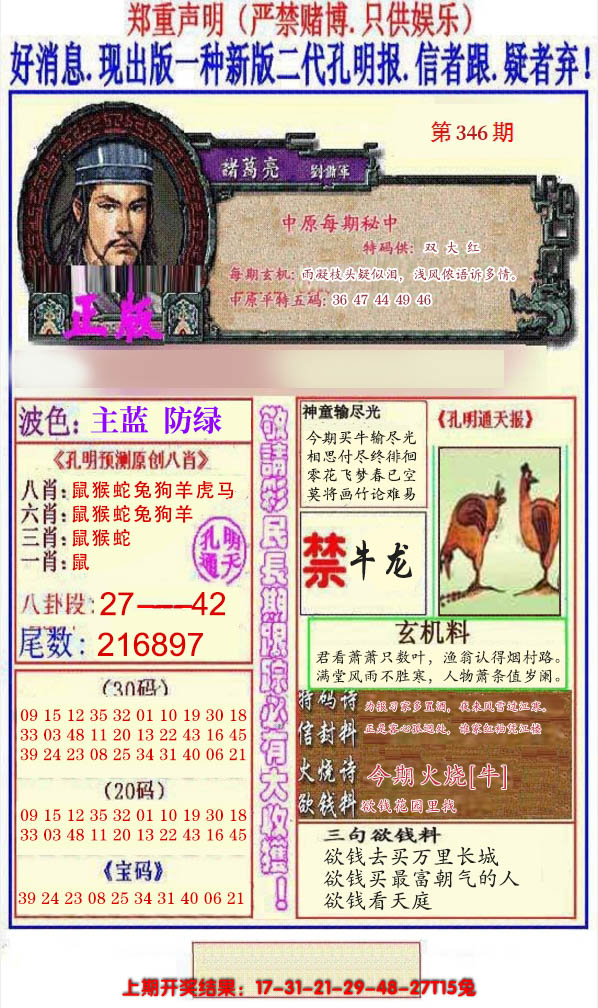 郑重声明（严禁赌博.只供娱乐）
好消息.现出版一种新版二代孔明报.信者跟.疑者弃!
第346期
諸葛亮 劉備軍
中原每期秘中
特码供：双 大 红
每期玄机：雨凝枝头疑似泪，浅风侬语诉多情。
中原平特五码：36 47 44 49 46
正版
波色：主蓝 防绿
《孔明预测原创八肖》
八肖：鼠猴蛇兔狗羊虎马
六肖：鼠猴蛇兔狗羊
三肖：鼠猴蛇
一肖：鼠
孔明
通天
八卦段：27——42
尾数：216897
（30码）
09 15 12 35 32 01 10 19 30 18
33 03 48 11 20 13 22 43 16 45
39 24 23 08 25 34 31 40 06 21
（20码）
09 15 12 35 32 01 10 19 30 18
33 03 48 11 20 13 22 43 16 45
《宝码》
39 24 23 08 25 34 31 40 06 21
敬請彩民長期跟踪必有大收獲！
神童输尽光
今期买牛输尽光
相思付尽终徘徊
零花飞梦春已空
莫将画竹论难易
《孔明通天报》
禁牛龙
玄机料
君看萧萧只数叶，渔翁认得烟村路。
满堂风雨不胜寒，人物萧条值岁阑。
特码诗
为报习家多置酒，夜来风雪过江寒。
信封料
正是客心孤迥处，谁家红袖凭江楼
火烧诗 今期火烧[牛]
欲钱料 欲钱花园里找
三句欲钱料
欲钱去买万里长城
欲钱买最富朝气的人
欲钱看天庭
上期开奖结果：17-31-21-29-48-27T15兔